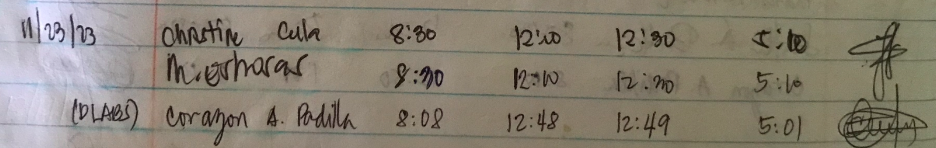 11/23/23 Christine Cula 8:30 12:00 12:30 5:10
8:30 12:10 12:30 5:10
(DLABS) Corazon A. Padilla 8:08 12:48 12:49 5:01